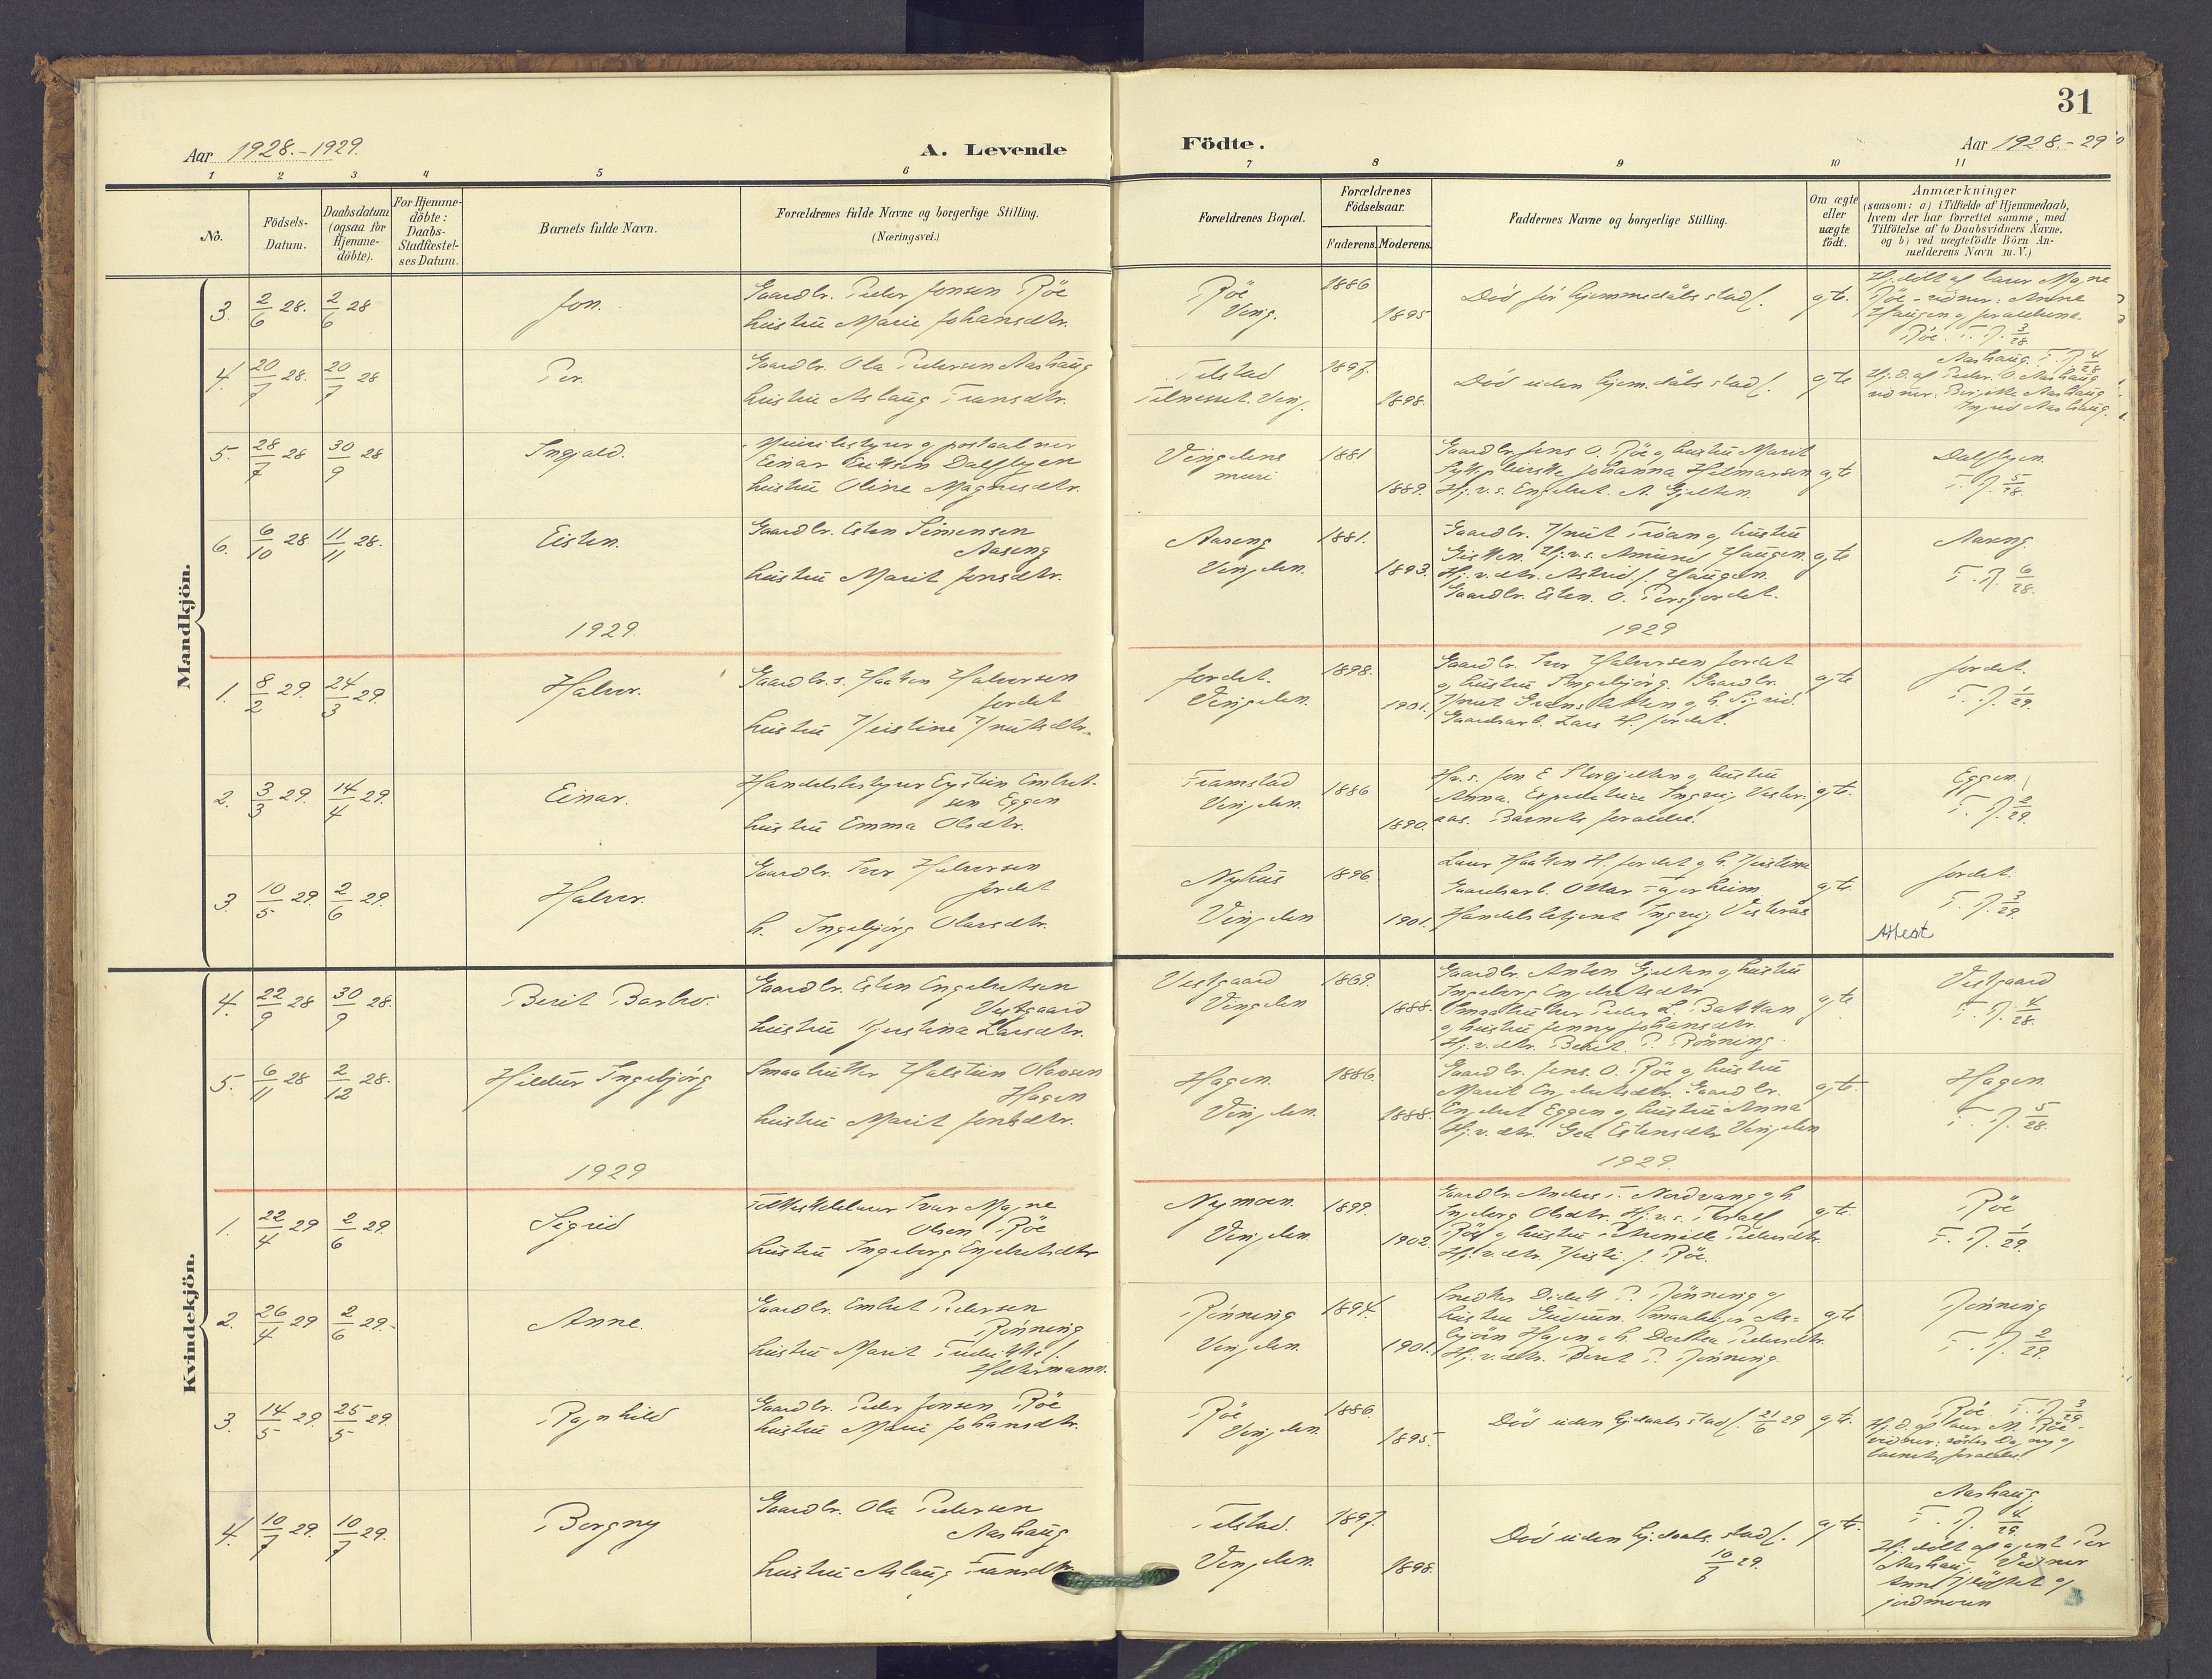 31
Aar 1928.-1929.
A. Levende
Födte.
Aar 1928.-29
1 2 3 4 5 6 7 8 9 10 11
No.
Födsels-
Datum.
Daabsdatum
(ogsaa for
Hjemme-
döbte).
For Hjemme-
döbte:
Daabs-
Stadfæstel-
ses Datum.
Barnets fulde Navn.
Forældrenes fulde Navne og borgerlige Stilling.
(Næringsvei.)
Forældrenes Bopæl.
Forældrenes
Födselsaar.
Faderens. Moderens.
Faddernes Navne og borgerlige Stilling.
Om ægte
eller
uægte
födt.
Anmærkninger
(saasom: a) i Tilfælde af Hjemmedaab,
hvem der har forrettet samme, med
Tilföielse af to Daabsvidners Navne,
og b) ved uægtefödte Börn An-
melderens Navn m.V.)
Mandkjön.
3. 2/6 28. 2/6 28 Jon.
Gaardbr. Peder Jonsen Röe
hustru Marie Johansdtr.
Röe
Ving.
1886
1895
Död för hjemmedåbs stadf.
Röe. F. R. 3/28
4. 20/7 28. 20/7 28 Per.
Gaardbr. Ola Pedersen Aashaug
hustru Aslaug Fransdtr.
Telstad
1897.
1898.
Död uden hjem.dåbs stadf.
Aashaug. F. R. 4/28
Hj.d. af Peder O. Aashaug
Ingrid Aashaug.
5. 28/7 28 30/9 28 Ingjald.
Einar Eriksen Dalsbyen
hustru Oline Magnesdtr.
Vingelens
1881
1889.
Gaardbr. Jens O. Röe og hustru Marit
Johanna Hilmarsen
Hj.v.s. Engebret A. Gjelten
Dalsbyen
F. R. 5/28
6. 6/10 28 11/11 28. Eisten.
Gaardbr. Esten Simensen
Aaseng
hustru Marit Jonsdtr.
Aaseng
Vingelen.
1881.
1893.
Gaardbr. Knut Tröan og hustru
Hj.v.s. Amund Haugen
Hj.v.dtr. Astrid J. Haugen.
Gaardbr. Esten O. Persjordet.
Aaseng.
F. R. 6/28.
1929.
1929
1. 8/2 29. 24/3 29. Halvor.
Gaardbr.s. Haaken Halvorsen
Jordet
hustru Kristine Knutsdtr.
Jordet.
Vingelen.
1898.
1901.
Gaardbr. Ivar Halvorsen Jordet
og hustru Ingebjörg. Gaardbr.
Gaardsarb. Lars H. Jordet.
Jordet.
F. R. 1/29.
2. 3/3 29. 14/4 29. Einar.
Handelsbestyrer Eystein Embret-
sen Eggen
hustru Emma Olsdtr.
Framstad
Vingelen.
1886
1890.
Hv.s. Jon E. Storgjelten og hustru
Barnets foraldre.
Eggen.
F. R. 2/29.
3. 10/5 29. 2/6 29. Halvor.
Gaardbr. Ivar Halvorsen
Jordet
h. Ingebjörg Olavsdtr.
Nyhus
Vingelen
1896.
1901.
Lærer Haaken H. Jordet og h. Kristine
Gaardsarb. Ottar Fagerheim
Handelsbetjent Ingvig Vesterås
Jordet.
F. R. 3/29.
Attest
Kvindekjön.
4. 22/9 28 30/9 28. Berit Barbro.
Gaardbr. Esten Engebretsen
Vestgaard
hustru Kjerstina Larsdtr.
Vestgaard
Vingelen
1869.
1888.
Gaardbr. Anton Gjelten og hustru
Ingeborg Engebretsdtr.
Smaabruker Peder L. Bakken
og hustru Jenny Johansdtr.
Hj.v.dtr. Berit P. Rönning
Vestgaard
F. R. 4/28.
5. 6/11 28 2/12 28. Hildur Ingebjörg
Smaabruker Halstein Olavsen
Hagen
hustru Marit Jonsdtr.
Hagen.
Vingelen.
1886.
1888.
Gaardbr. Jens O. Röe og hustru
Marit Engebretsdtr. Gaardbr.
Engebret Eggen og hustru Anna
Hj.v.dtr. Gea Estensdtr Vingelen
Hagen
F. R. 5/28.
1929
1929.
1. 22/4 29 2/6 29. Sigrid
Ivar Magne
Olsen Röe
hustru Ingeborg Engebretsdtr
Nymoen.
Vingelen
1899.
1902.
Gaardbr. Anders T. Nordvang og h.
Ingeborg Olsdtr. Hj.v.s.
Röe og hustru Pernille Pedersdtr.
Röe
F. R. 1/29.
2. 26/4 29 2/6 29. Anne.
Gaardbr. Embret Pedersen
Rönning
hustru Marit Fredrikke f.
Holtermann.
Rönning
Vingelen.
1894.
1901.
Snedker Didrik P. Rönning og
hustru Gudrun. Smaabruger As-
björn Hagen og h. Dorthea Pedersdtr.
Hj.v.dtr. Berit P. Rönning.
Rönning
F. R. 2/29.
3. 14/5 29. 25/5 29. Ragnhild
Gaardbr. Peder Jonsen Röe
hustru Marie Johansdtr.
Röe
Vingelen.
1886.
1895.
Död uden hj.daabs stadf. 21/6 29
Röe F. R. 3/29
4. 10/7 29. 10/7 29. Borgny
Gaardbr. Ola Pedersen
Aashaug
hustru Aslaug Fransdtr.
Telstad.
Vingelen.
1897.
1898.
Död uden hj.daabs stadf.
Aashaug.
F. R. 4/29.
Hj.döbt af agent Per
Aashaug. Vidner
jordmoren